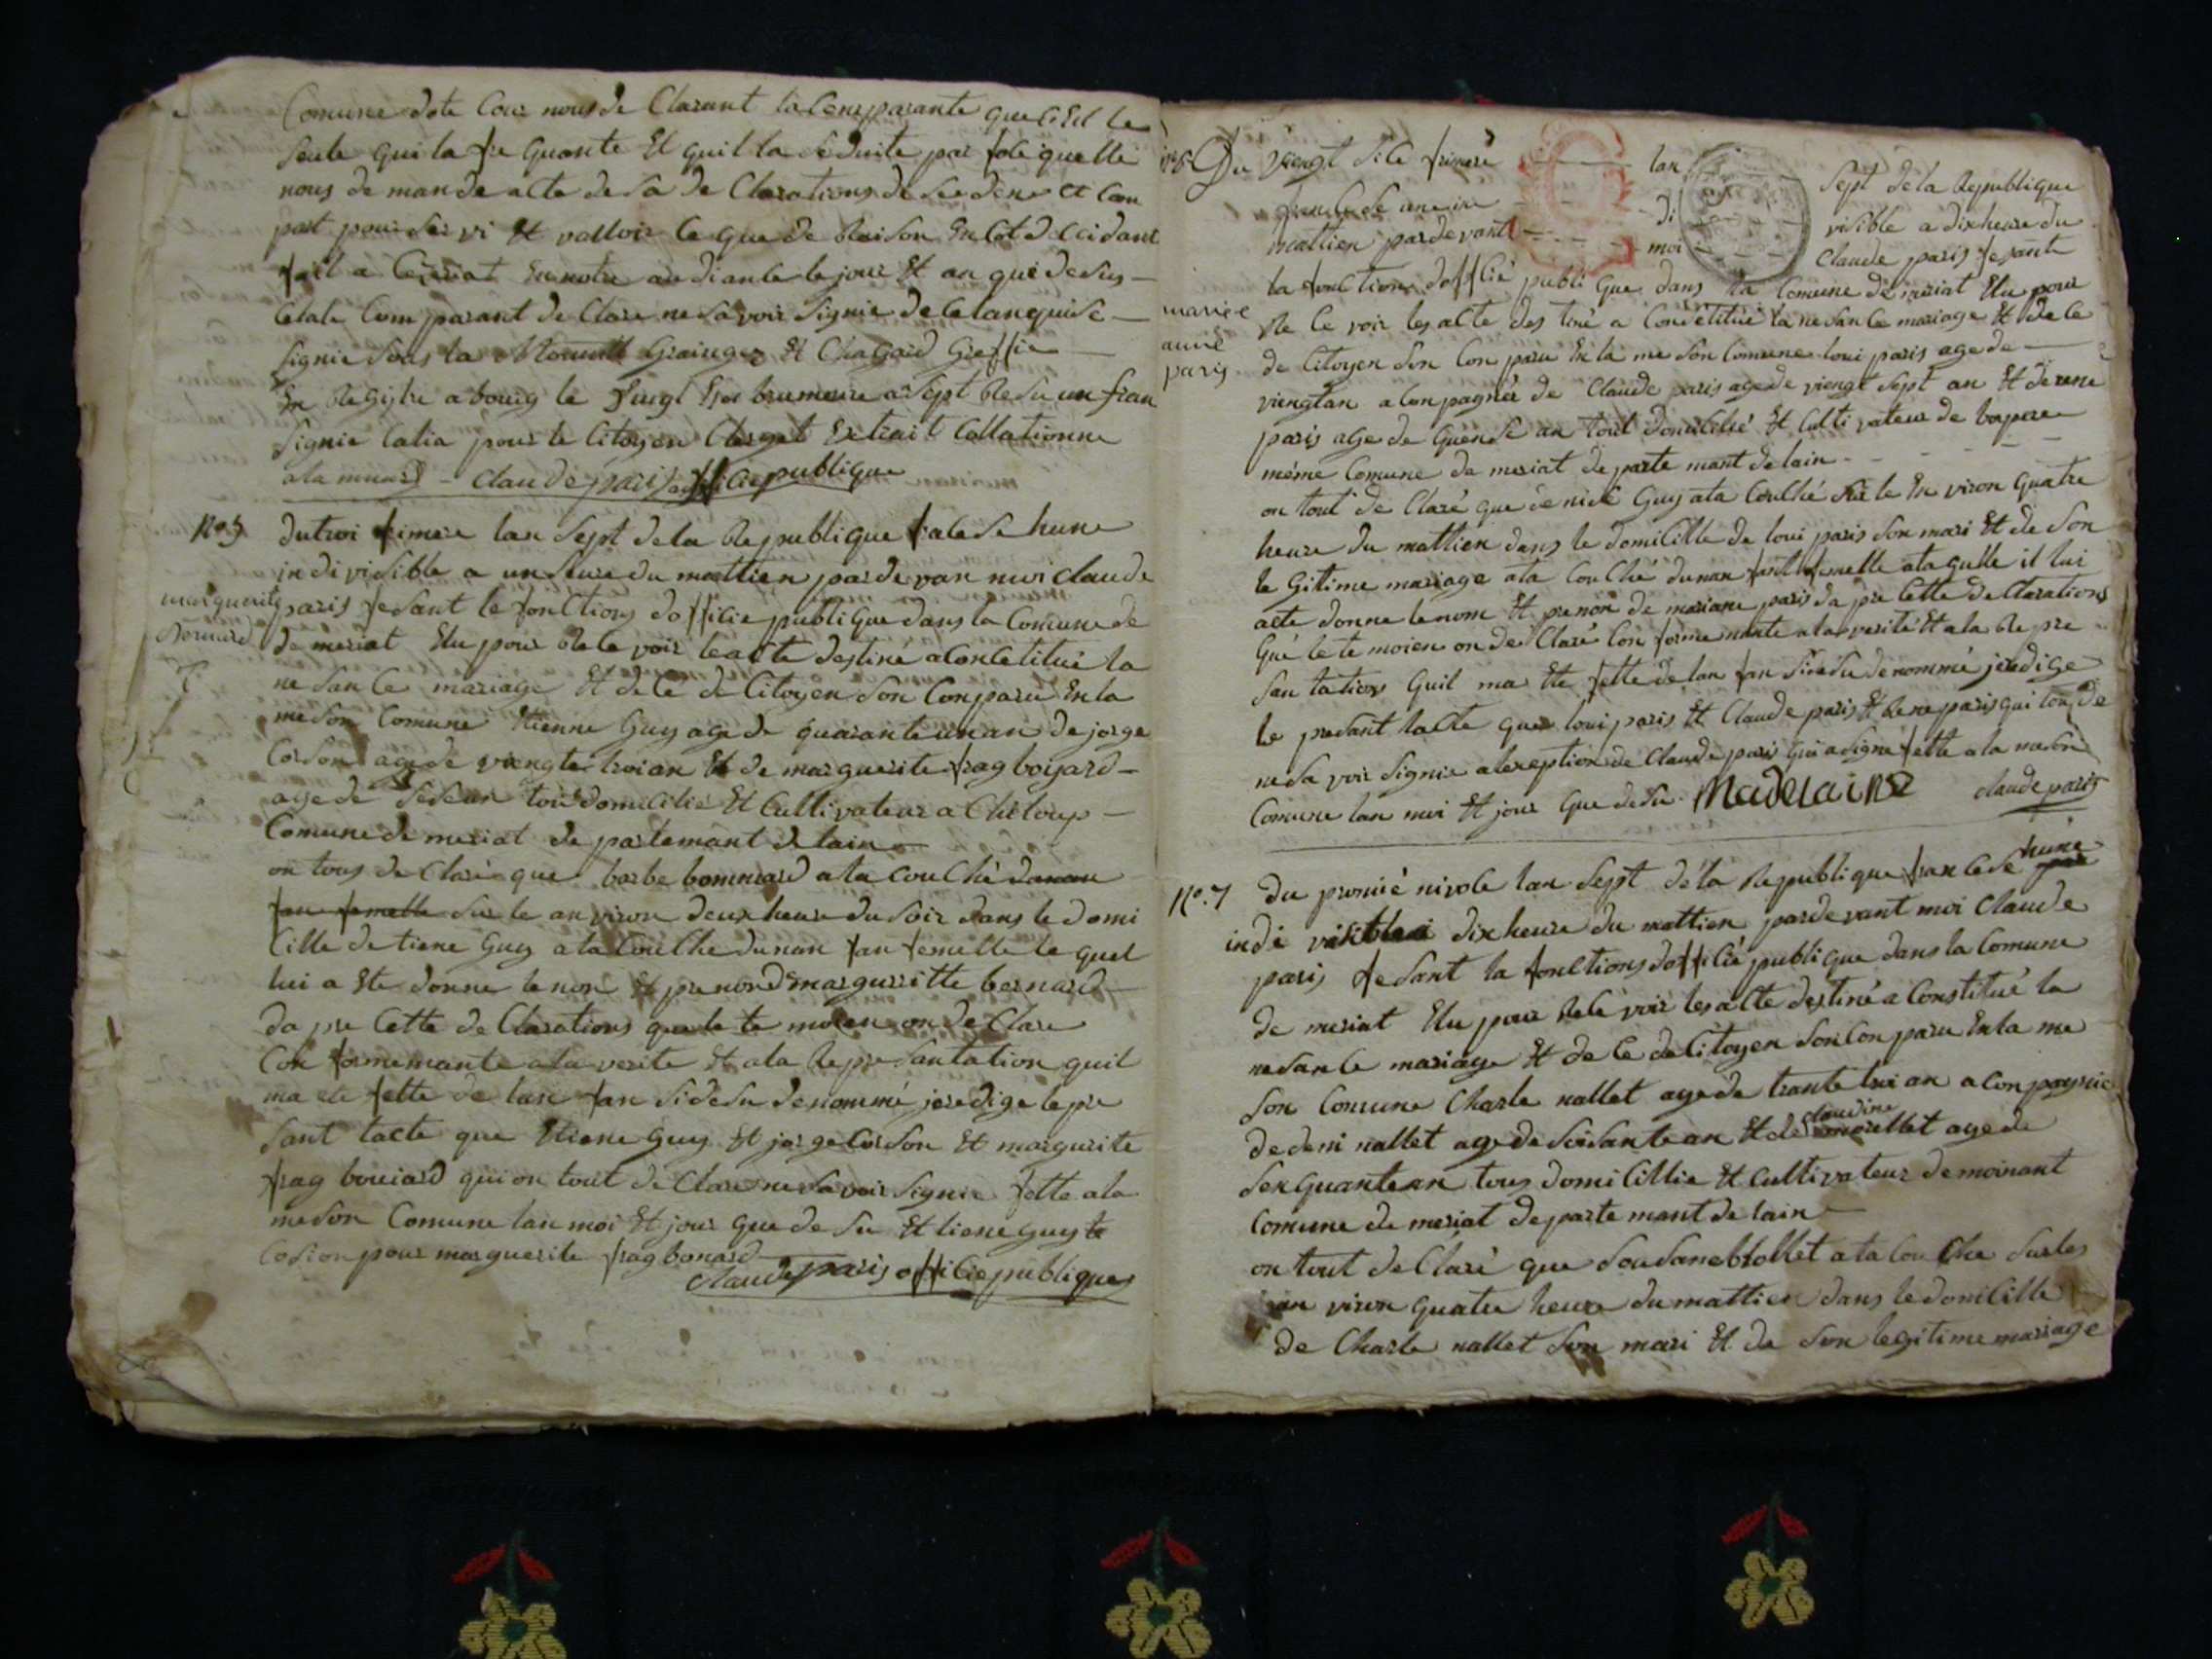 Comune dote Cour nous de Clarant la Conparante que cest le
seule qui la fre quante Et quil la seduite par fole quelle
nous de mande alte de sa de Clarations de
part pour ser vi Et valloir Ce que de Raison En Cot daccidant
fait a Ceiriat En notre au diance le jour Et an que desus
Com parant de Clare ne savoir signie de Ce lanquise
signie sous la Grainger Et Chagard Greffie
En Regitre a bourg le vingt troi brumere a sept Resu un fran
signie Catia pour le Citoyen Clerget Extrait Collationne
ala minute Claude paris officie publique
No 5 du troi frimere lan sept de la Republique frale se hune
in di visible a un heure du mattien par de van moi Claude
marguerite paris fesant le fonltions dofficie publi Gue dans la Comune de
bernard de meriat Elu pour Rele voir lealte destiné a Concetitué la
ne san Ce mariage Et de Ce de Citoyen son Conparu En la
me son Comune Etienne Guy age de quarante un an de jorge
Corson age de viengte troi an Et de marguerite frag boyard
age de sese an tous domicilie Et Cultivateur a Cheloup
Comune de meriat de partemant de lain
on tous de Claré que barbe bonnard a la Couché danan
fan femelle sur le an viron deux heure du soir dans le domi
Cille de tiene Guy a la Couche dunan fan femelle le quel
lui a Ete donne le non Et prenond marguritte bernard
da pre Cette de Clarations que le te moien on de Clare
Con formemante a la verite Et ala Repre santation quil
ma ete fette de lan fan si de su denommé jere dige le pre
sant lacte que Etiene Guy Et jorge Corson Et margurite
frag bouiard qui on tout de Clare ne savoir signie fette a la
meson Comune lan moi Et jour que de su Et tiene guy te
Cosion pour marguerite frag bonard
Claude paris officie publique
No 6 Du viengt si le frimere lan sept de la Republique
francese une in di visible a dix heure du
mattien par de vant moi Claude paris fesante
la fonltions dofficié publi Gue dans la Comune de meriat Elu pour
mariée Re Ce voir les alte des tiné a Condetitué la nesance mariage Et de Ce
anne de Citoyen son Con paru En la me son Comune loui paris age de
paris viengtan a Conpagnée de Claude paris age de viengt sept an Et de rene
paris age de quense an tout domicilié Et Culti vateur de
méme Comune de meriat de parte mant de lain
on tout de Claré que de nise Guy ala Couché sur le En viron quatre
heure du mattien dans le domicille de loui paris son mari Et de son
le Gitime mariage ala Couché dunan fant femelle ala gulle il lui
aete donne le nom Et prenon de mariane paris da pre Cette de Clarations
Gué le te moien on de Claré Con forme mante ala verité Et ala Re pre
san tations Quil ma Ete fette de lan fan si de su denommé jeredige
le presant lacte que loui paris Et Claude paris Et Rene paris qui ton de
ne sa voir signie alexeption de Claude paris qui a signé fette a la meson
Comune lan moi Et jour que de su. Madelaine claude paris
No. 7 Du promié nivole lan sept dela Republique fran Cese hune
in di visible a dix heure du mattien par de vant moi Claude
paris fesant la fonltions dofficié publi que dans la Comune
de meriat Elu pour Rele voir les alte destiné a Constitué la
nesan Ce mariage Et de Ce de Citoyen son Con paru En la me
son Comune Charle nallet age de trante troi an a Con pagnie
de deni nallet age de soisante an Et de Claudine mollet age de
senquantean tous domi Cillie Et Cultivateur de moinant
Comune de meriat departe mant de lain
on tout de Claré que sousane blollet a la Cou Che sur les
an viron quatre heure du mattien dans le domicille
de Charle nallet son mari Et de son legitime mariage